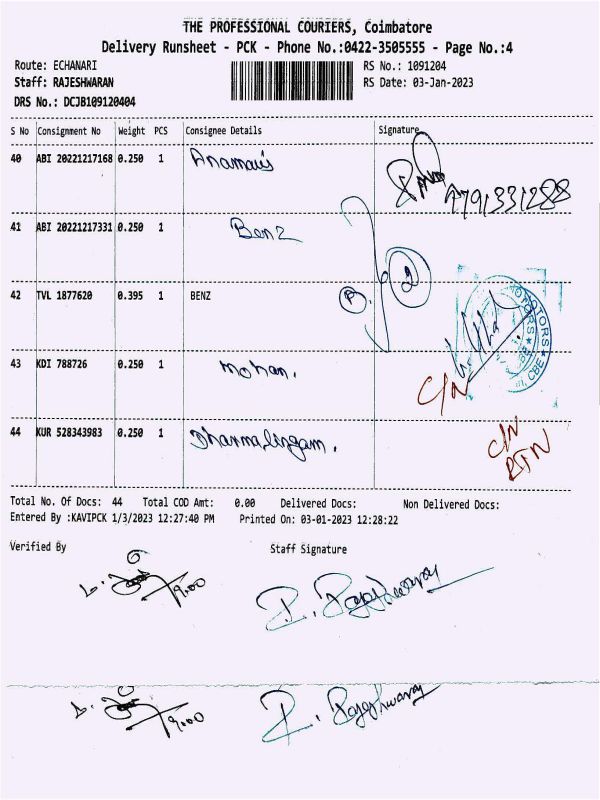 THE PROFESSIONAL COURIERS, Coimbatore
Delivery Runsheet - PCK - Phone No.:0422-3505555 - Page No.:4
Route: ECHANARI
RS No.: 1091204
Staff: RAJESHWARAN
RS Date: 03-Jan-2023
DRS No.: DCJB109120404
S No Consignment No Weight PCS Consignee Details Signature
40 ABI 20221217168 0.250 1
41 ABI 20221217331 0.250 1 Benz
2
B.
42 TVL 1877620 0.395 1 BENZ
MOTORS
CBE
43 KDI 788726 0.250 1 Mohan.
C/N
44 KUR 528343983 0.250 1 Dharmalingam.
C/N
Total No. Of Docs: 44 Total COD Amt: 0.00 Delivered Docs: Non Delivered Docs:
Entered By :KAVIPCK 1/3/2023 12:27:40 PM Printed On: 03-01-2023 12:28:22
Verified By Staff Signature
9.00
R. Rajeshwaran
9.00
R. Rajeshwaran